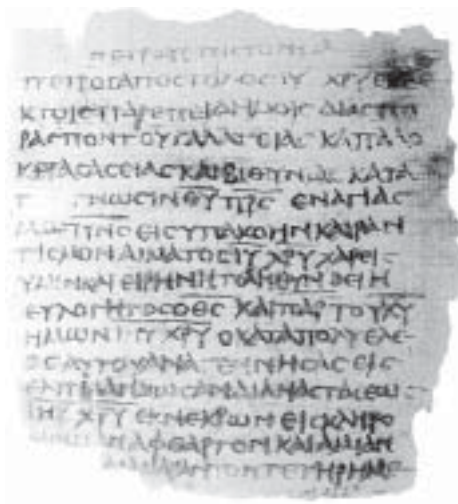 ΑΠΟϹΤΟΛΟϹ ΙΥ ΧΡΥ
ΚΤΟΙϹ ΠΑΡΕΠΙΔΗΜΟΙϹ ΔΙΑϹΠΟ
ΡΑϹ ΠΟΝΤΟΥ ΓΑΛΑΤΕΙΑϹ ΚΑΠΠΑΔΟ
ΚΑΙ ΒΙΘΥΝΙΑϹ ΚΑΤΑ
ΓΝΩϹΙΝ ΘΥ ΠΡϹ ΕΝ ΑΓΙΑϹ
ΜΩ ΠΝϹ ΕΙϹ ΥΠΑΚΟΗΝ ΚΑΙ ΡΑΝ
ΤΙϹΜΟΝ ΑΙΜΑΤΟϹ ΙΥ ΧΡΥ ΧΑΡΕΙϹ
ΥΜΙΝ ΚΑΙ ΕΙΡΗΝΗ ΠΛΗΘΥΝΘΕΙΗ
ΕΥΛΟΓΗΤΟϹ Ο ΘΕϹ ΚΑΙ ΠΑΡ ΤΟΥ ΚΥ
ΗΜΩΝ ΙΥ ΧΡΥ Ο ΚΑΤΑ ΠΟΛΥ ΕΛΕ
ΟϹ ΑΥΤΟΥ ΑΝΑΓΕΝΝΗϹΑϹ ΕΙϹ
ΕΛΠΙΔΑ ΖΩϹΑΝ ΔΙ ΑΝΑϹΤΑϹΕΩϹ
ΙΗΥ ΧΡΥ ΕΚ ΝΕΚΡΩΝ ΕΙϹ ΚΛΗΡΟ
ΑΦΘΑΡΤΟΝ ΚΑΙ ΑΜΙΑΝ
ΤΕΤΗΡΗΜΕ